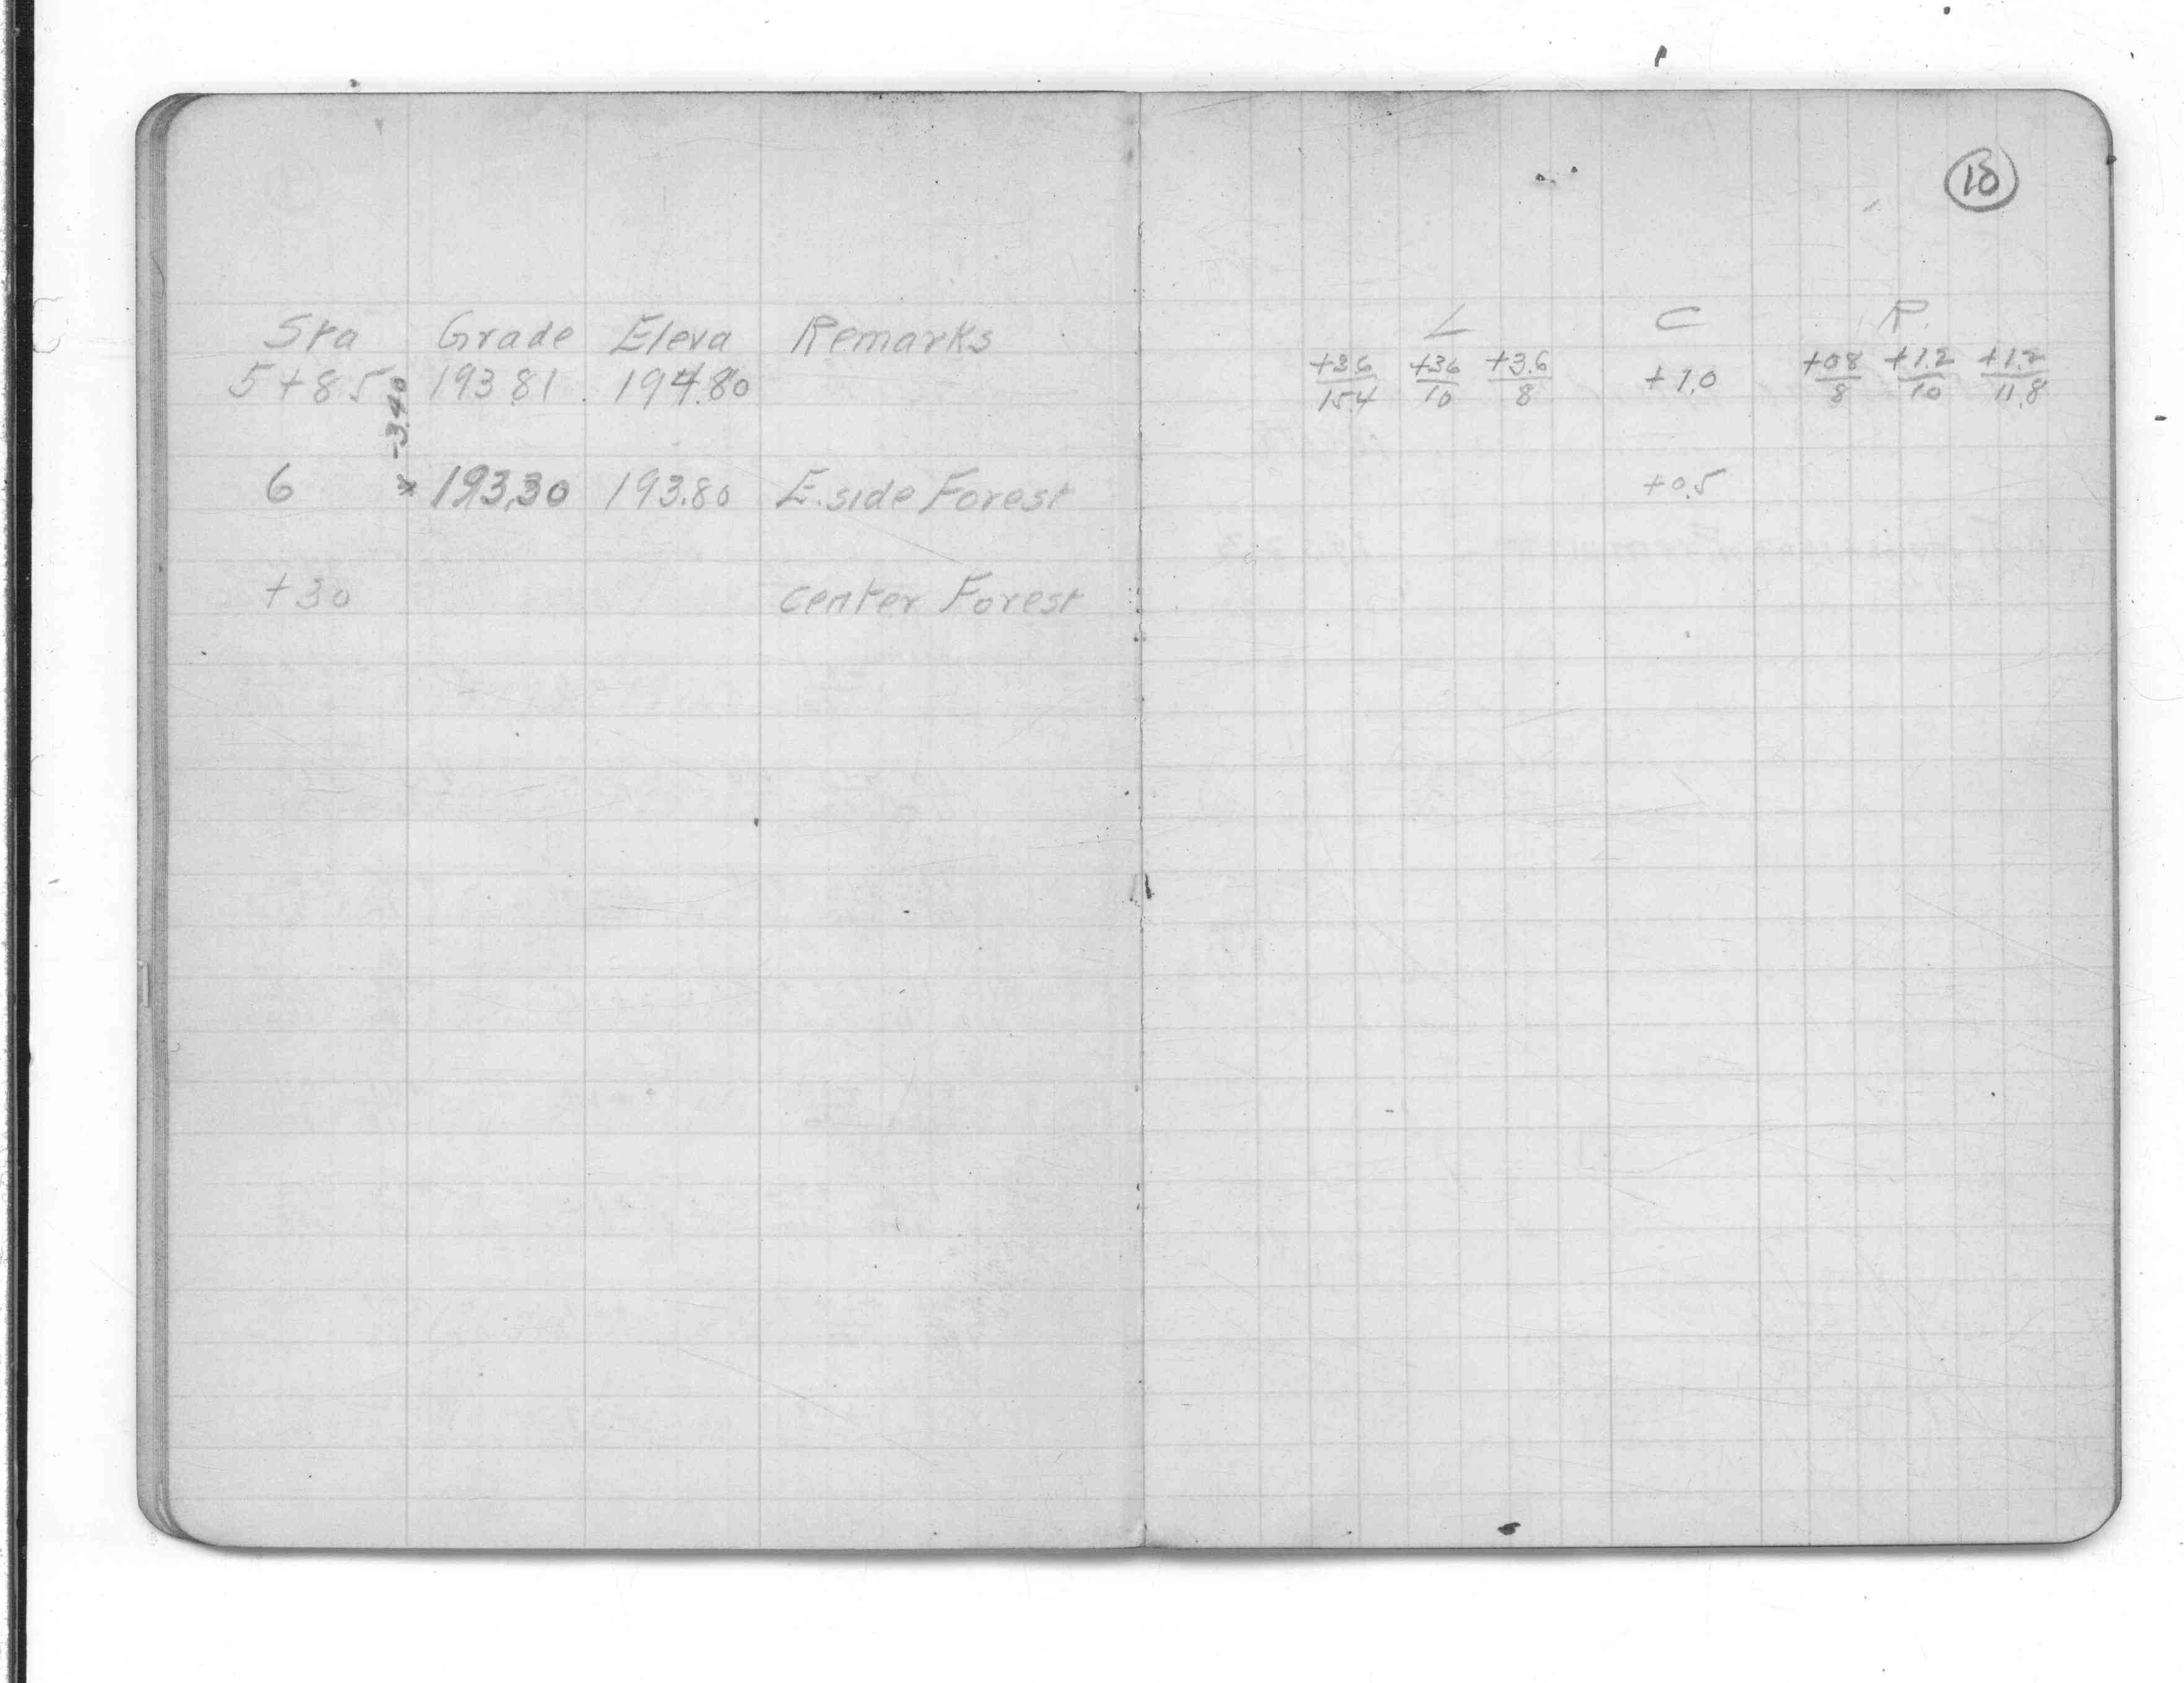 18
Sta Grade Eleva Remarks L C R.
5+85 193.81 194.80 +3.6/15.4 +3.6/10 +3.6/8 +1.0 +0.8/8 +1.2/10 +1.2/11.8
-3.40
6 x 193.30 193.80 E. side Forest +0.5
+30 center Forest